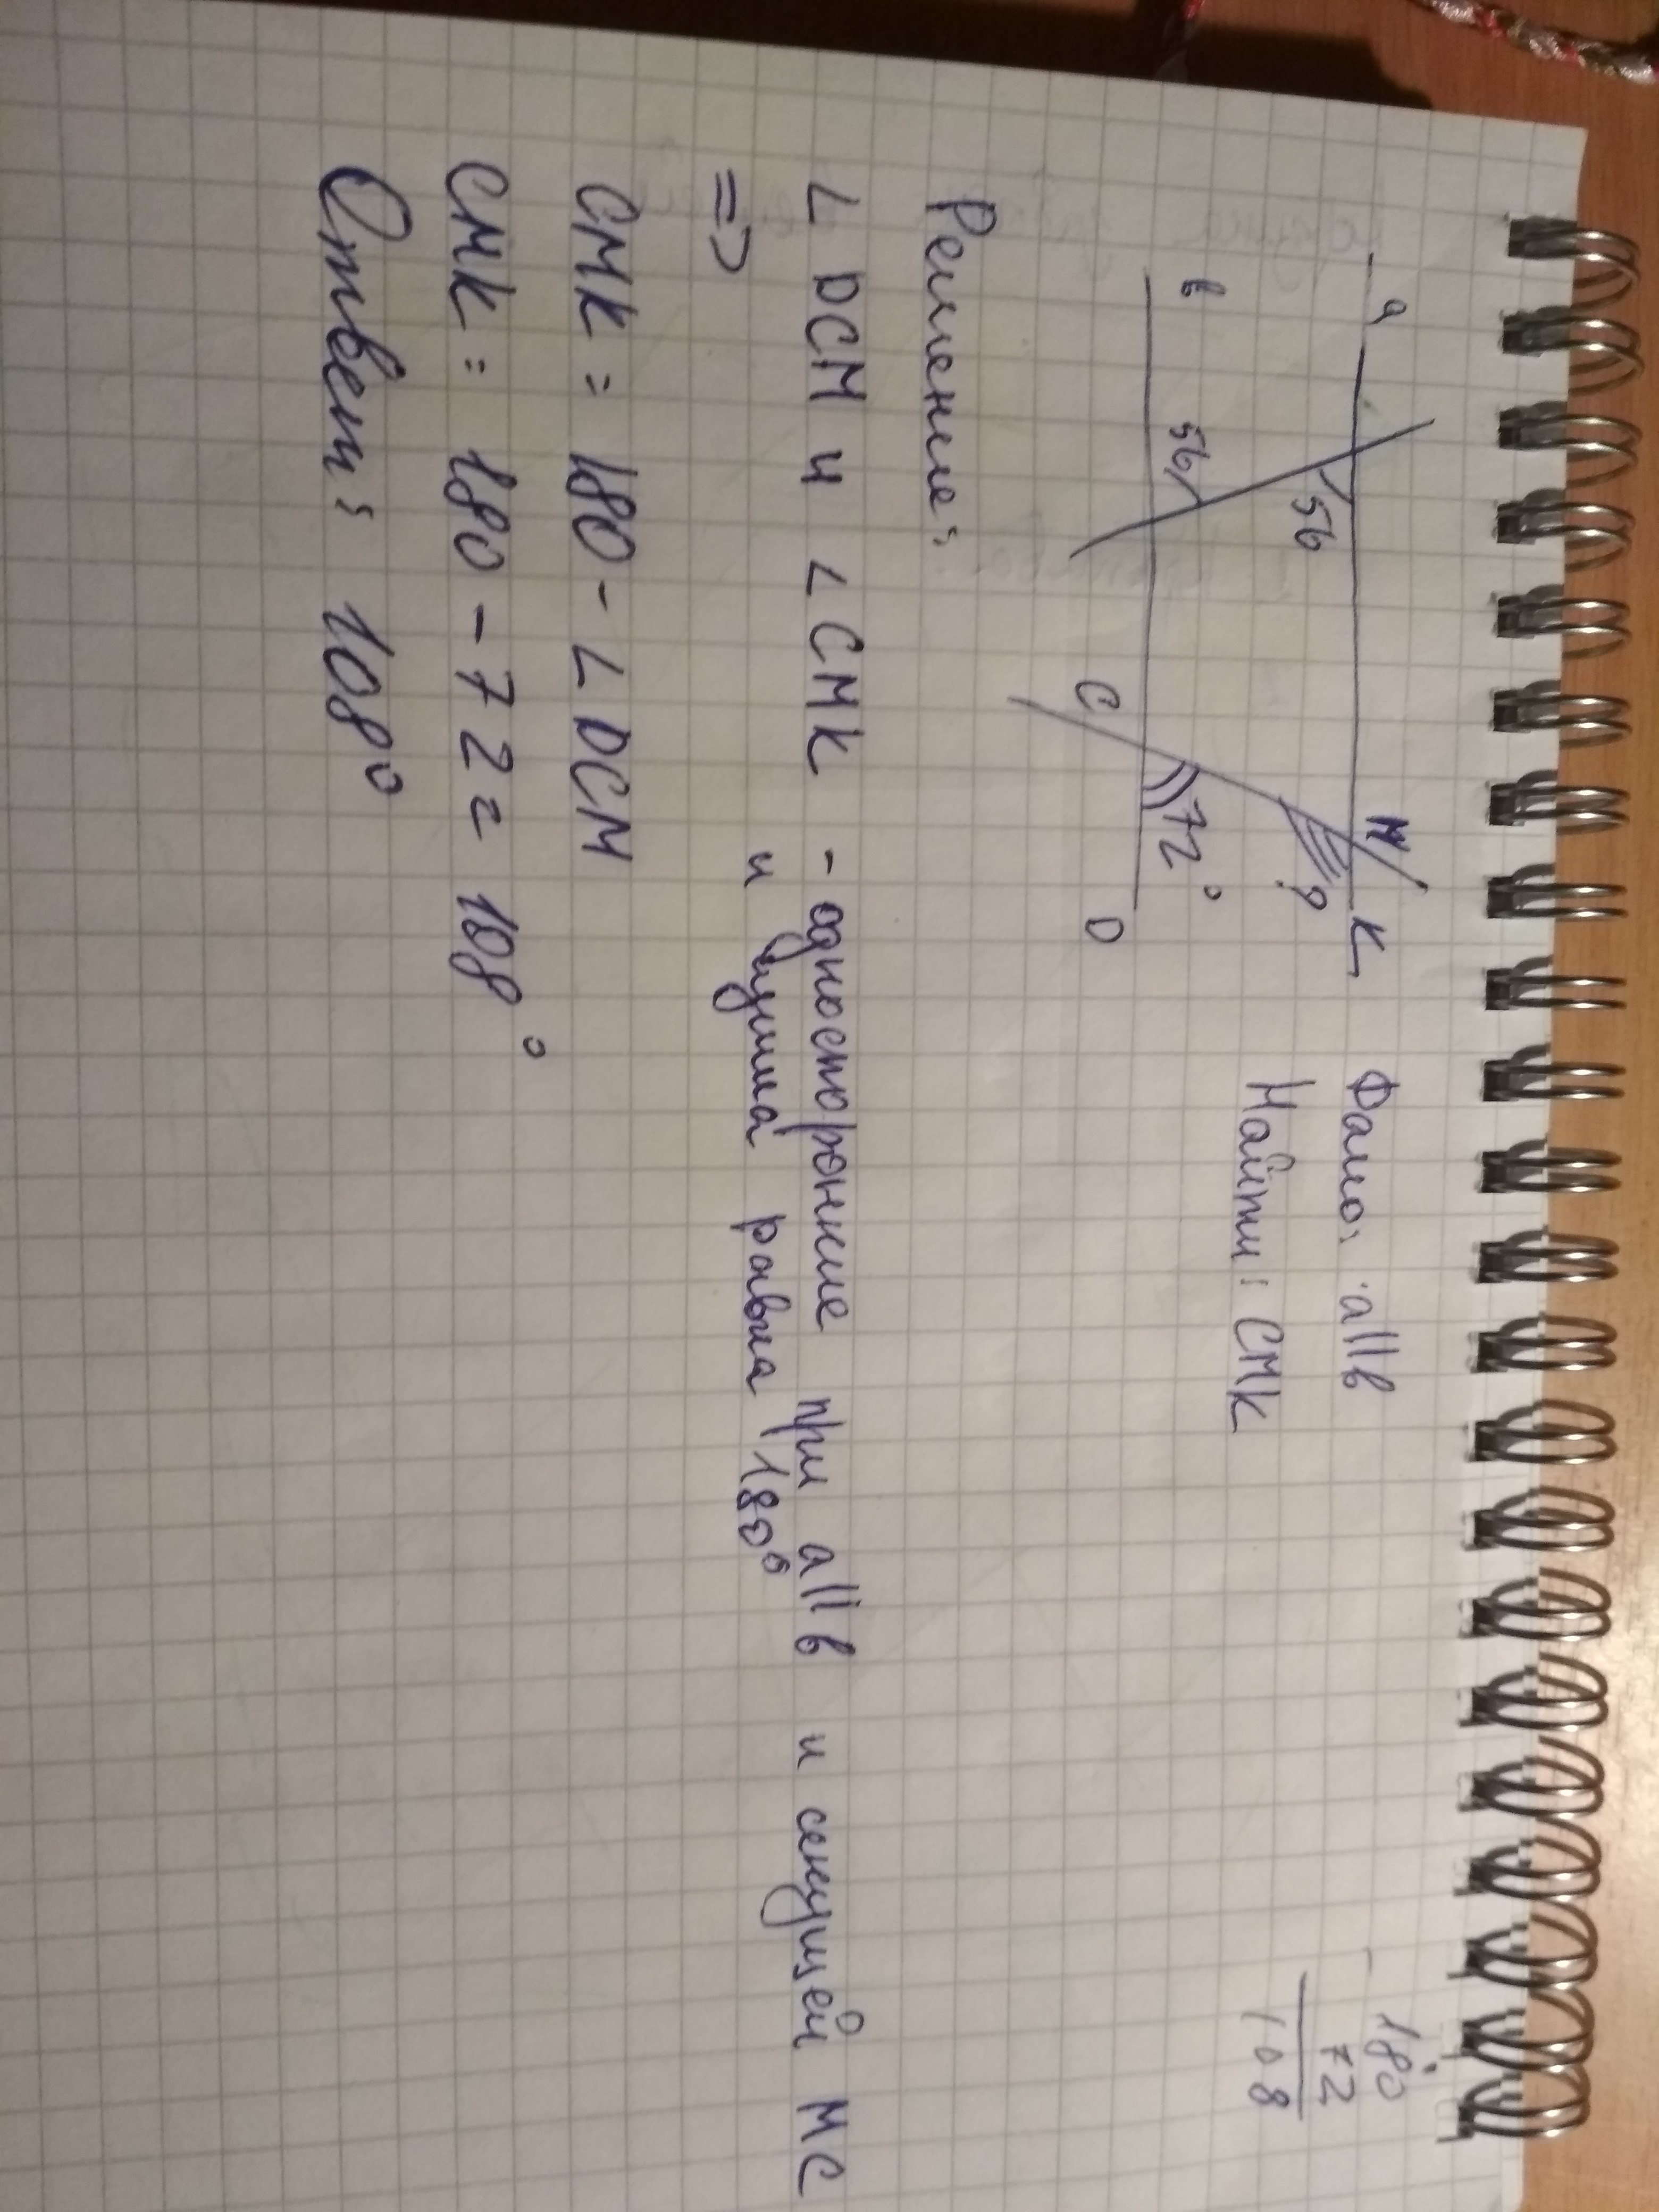 a
56
M
K
?
в
56
C
72°
D
Дано: a||в
Найти: CMK
180
72
108
Решение:
∠ DCM и ∠ CMK - односторонние при a||в и секущей MC
=> и сумма равна 180°
CMK = 180 - ∠ DCM
CMK = 180 - 72 = 108°
Ответ: 108°